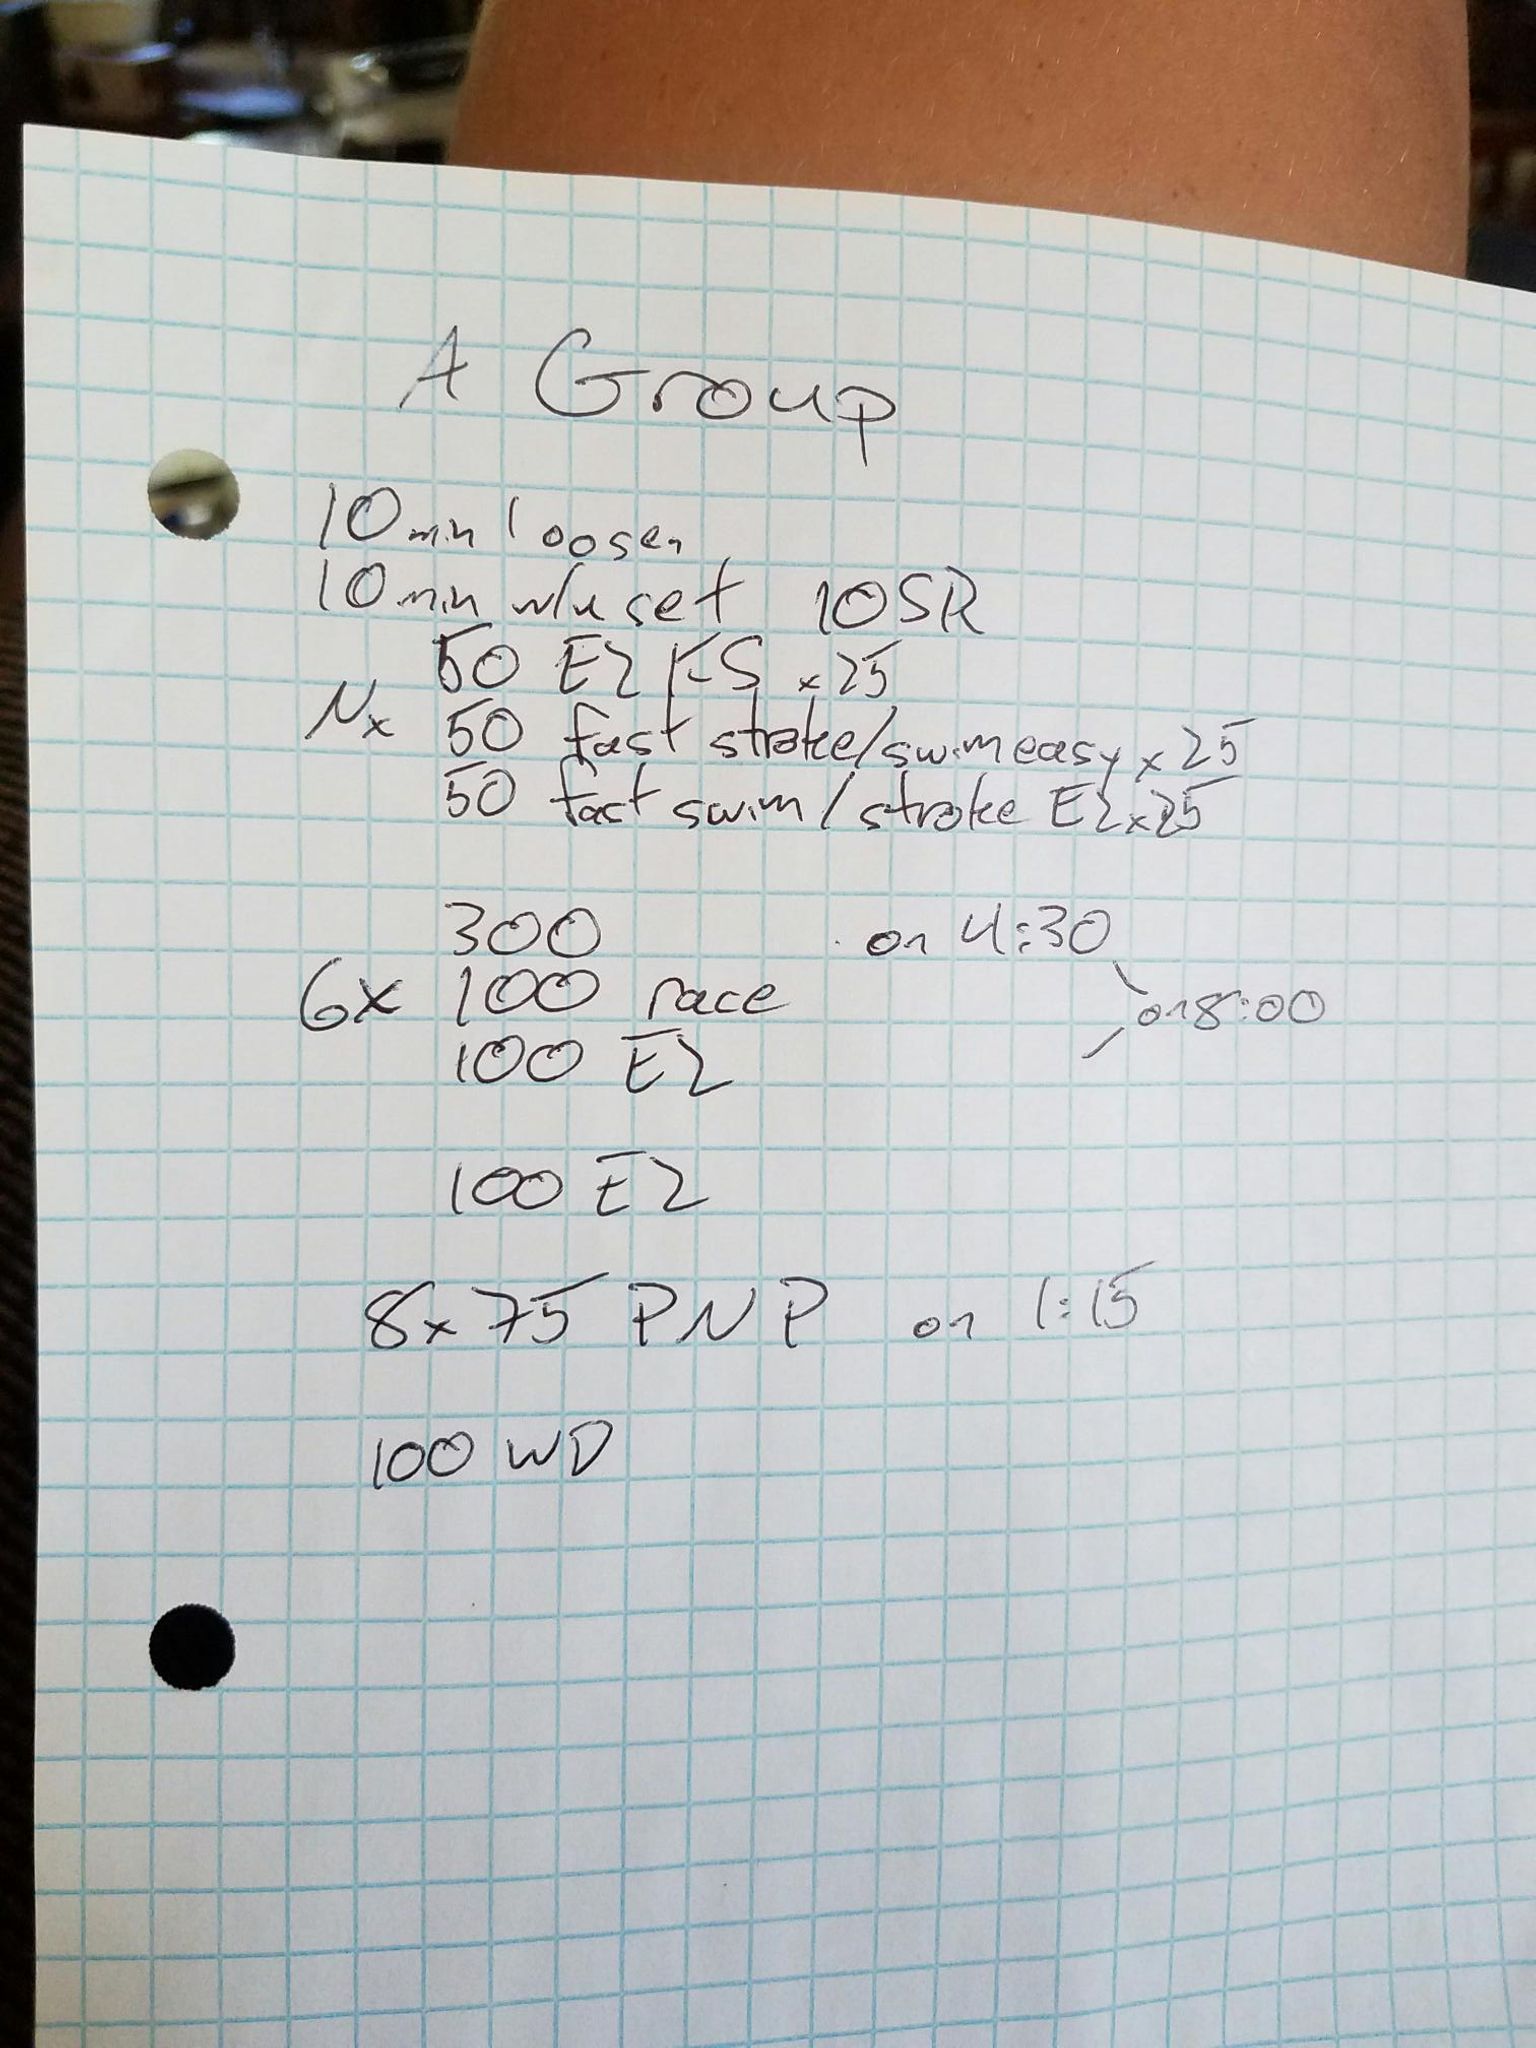 A Group
10 min loosen
10 min w/u set 10SR
50 EZ KS x25
Nx 50 fast stroke/swim easy x 25
50 fast swim/stroke EZ x25
300 on 4:30
6x 100 race on 8:00
100 EZ
100 EZ
8x 75 PNP on 1:15
100 WD